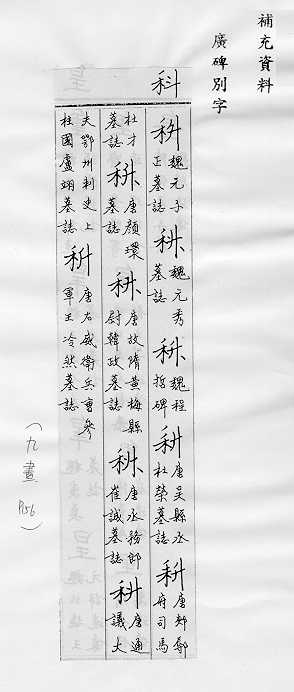 補充資料
廣碑別字
科
魏元子正墓誌
魏元秀墓誌
魏程哲碑
唐吳縣丞杜榮墓誌
唐郟鄏府司馬
杜才墓誌
唐顏瓌墓誌
唐故隋黃梅縣尉韓政墓誌
唐丞務郎崔誠墓誌
唐通議大
夫鄂州刺史上柱國盧翊墓誌
唐右威衛兵曹參軍王冷然墓誌
(九畫 P156)